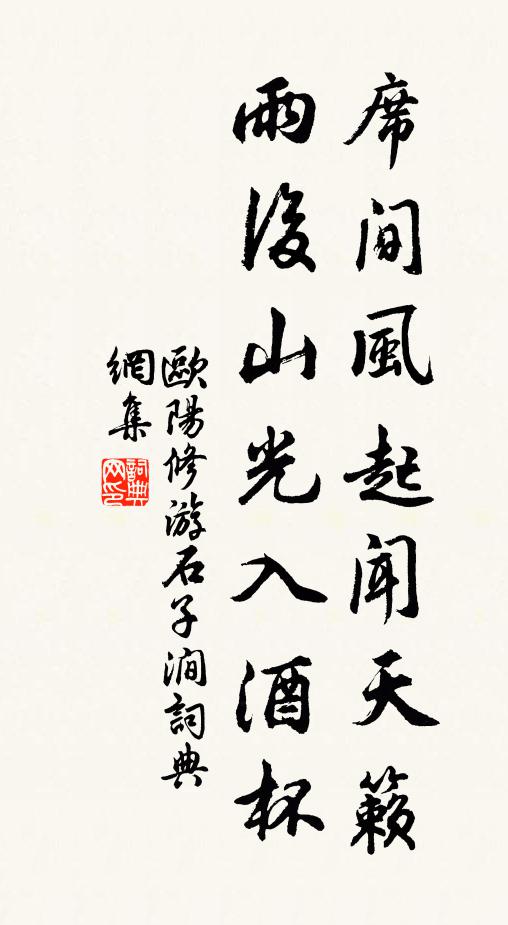 席間風起聞天籟
雨後山光入酒杯
歐陽修游石子澗詞典
網集
詞典
网印